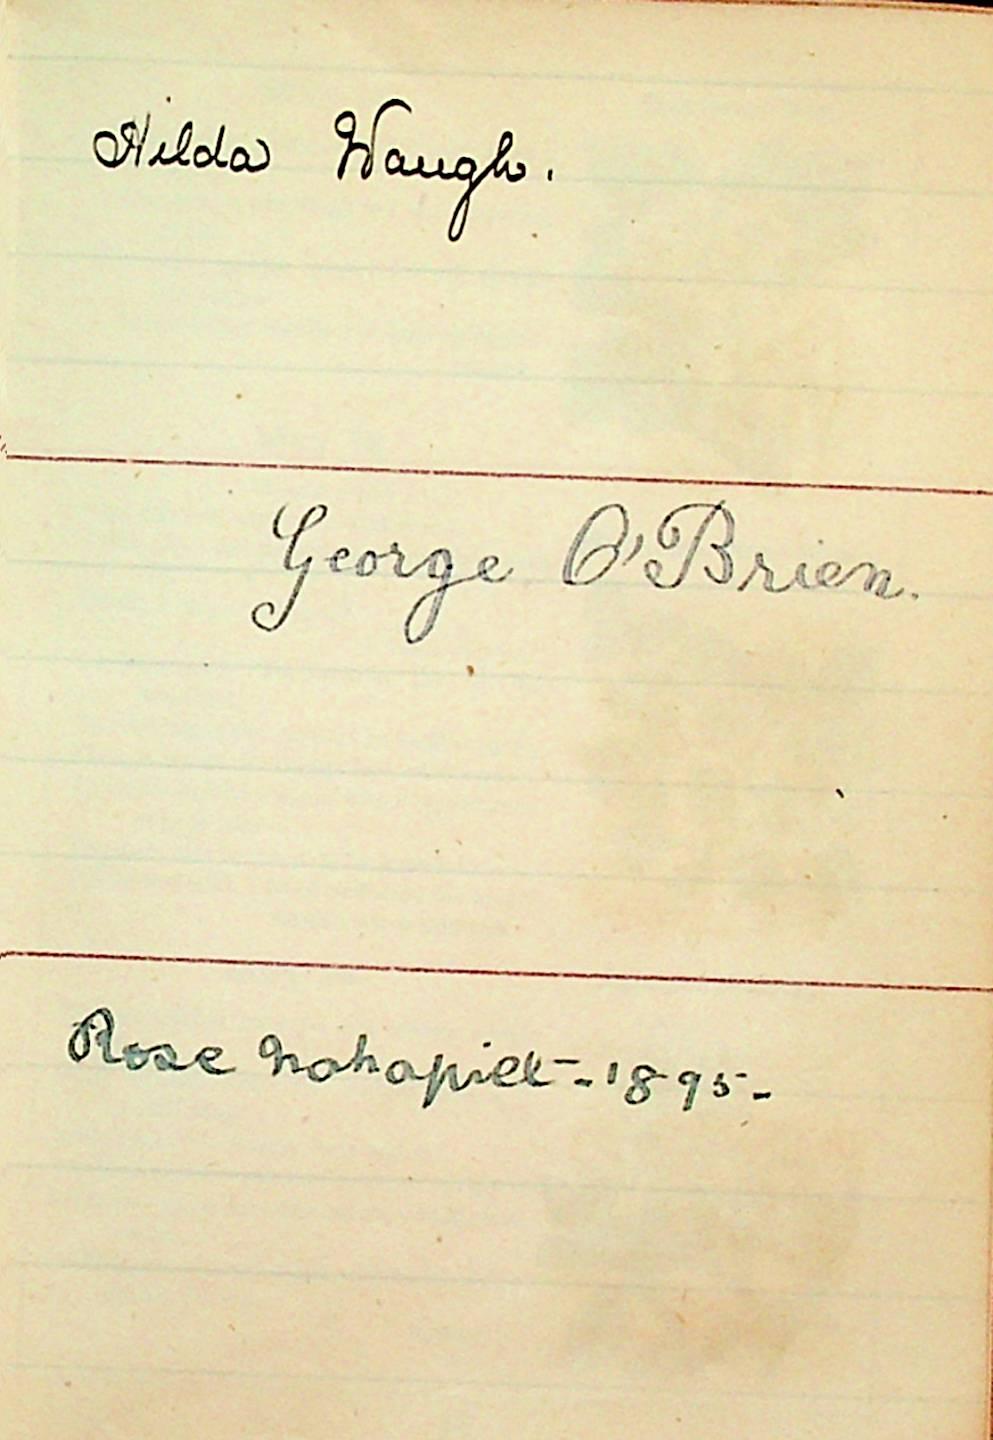 Hilda Waugh.
George O'Brien.
Rose Nahapiet - 1895 -